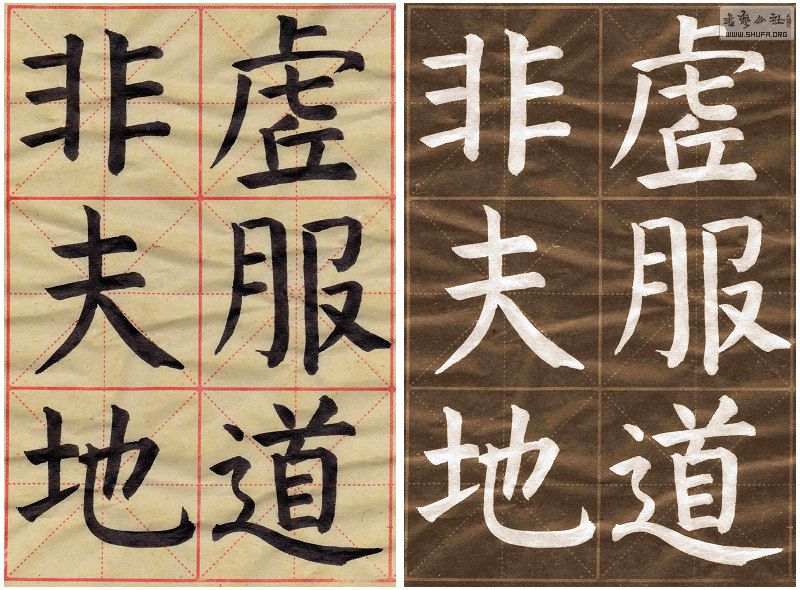 虗服道
非夫地
虗服道
非夫地
書藝公社
WWW.SHUFA.ORG